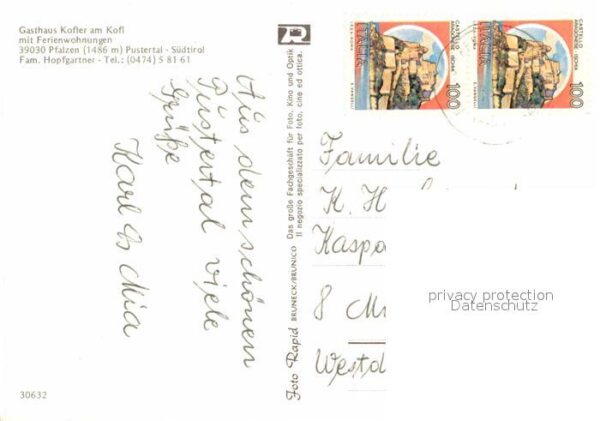 Gasthaus Kofler am Kofl
mit Ferienwohnungen
39030 Pfalzen (1486 m) Pustertal - Südtirol
Fam. Hopfgartner - Tel.: (0474) 5 81 61
Aus dem schönen
Pustertal viele
Grüße
Karl & Mia
30632
Foto Rapid BRUNECK/BRUNICO
Das große Fachgeschäft für Foto, Kino und Optik
Il negozio specializzato per foto, cine ed ottica.
CASTELLO
ARAGONESE · ISCHIA
ITALIA
100
CASTELLO
ARAGONESE · ISCHIA
ITALIA
100
Familie
K. H
Kaspa
8 M
Westd
privacy protection
Datenschutz